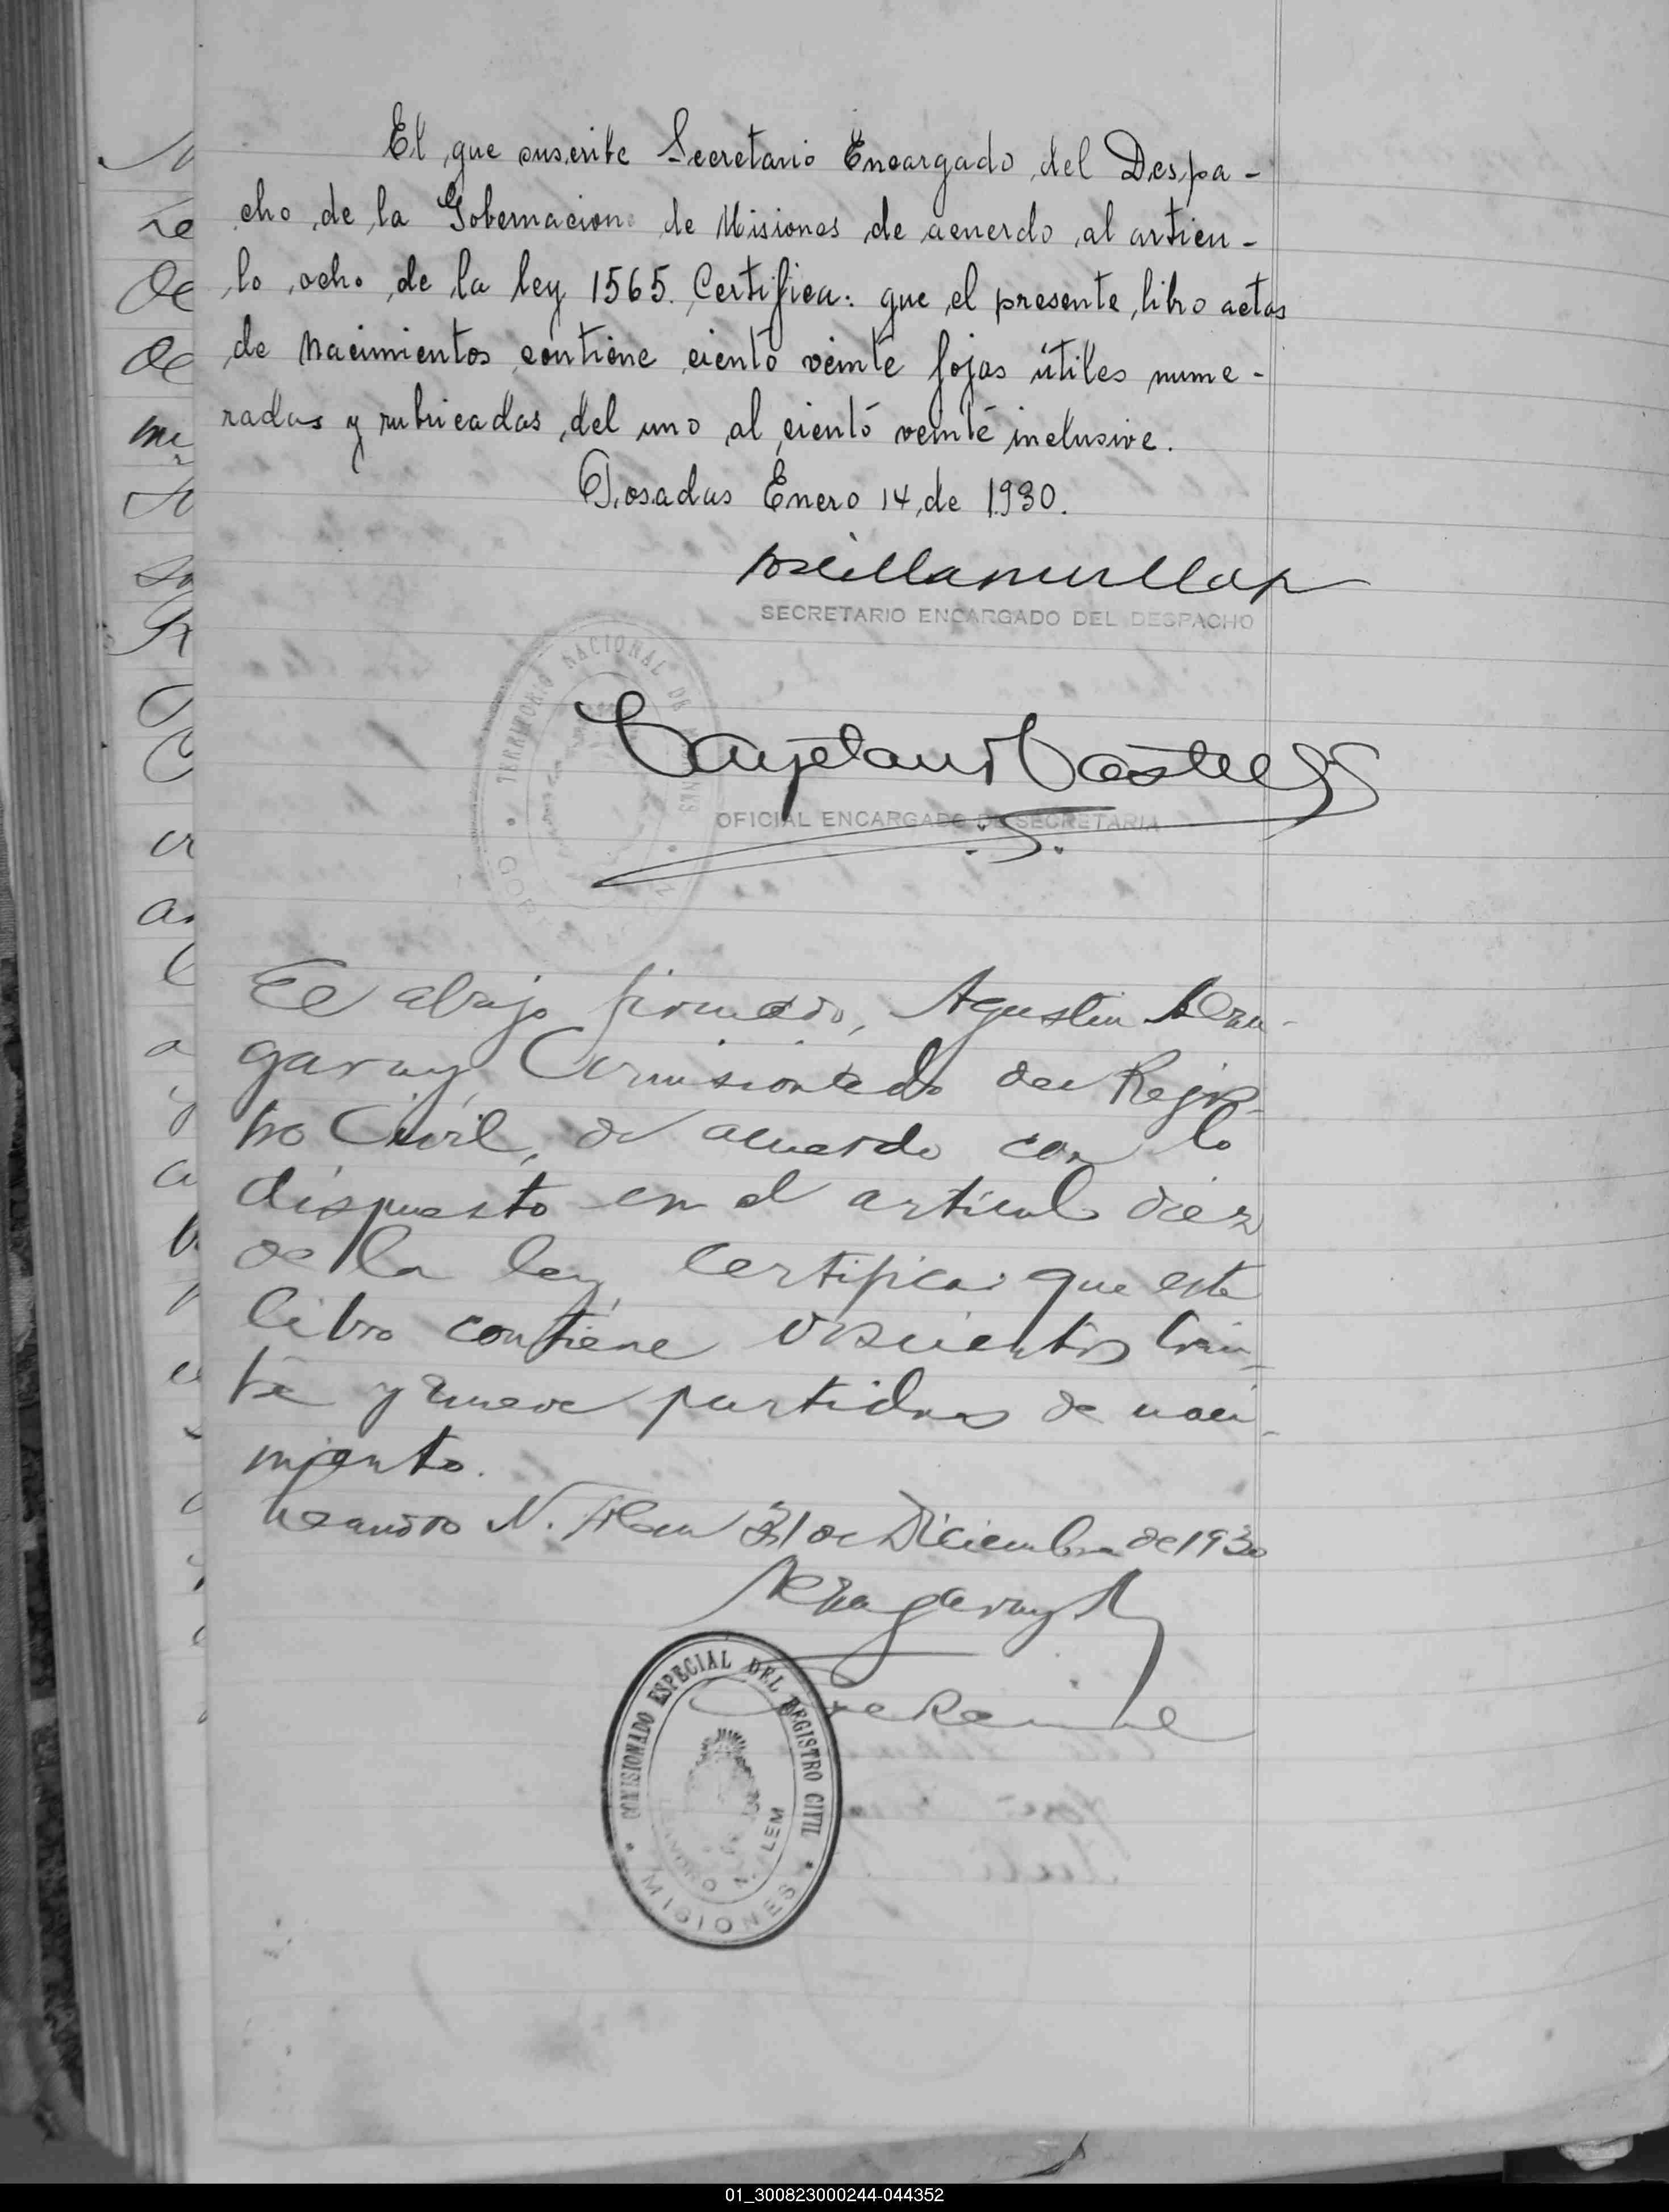 El que suscribe Secretario Encargado del Despa-
cho de la Gobernacion de Misiones de acuerdo al artícu-
lo ocho de la ley 1565. Certifica: que el presente libro actas
de Nacimientos contiene ciento veinte fojas útiles nume-
radas y rubricadas del uno al ciento veinte inclusive.
Posadas Enero 14 de 1930.
SECRETARIO ENCARGADO DEL DESPACHO
TERRITORIO NACIONAL DE MISIONES
Cayetano Castell
OFICIAL ENCARGADO DE SECRETARIA
El abajo firmado, Agustin
garay, Comisionado del Regis-
tro Civil, de acuerdo con lo
dispuesto en el articulo diez
de la ley, Certifica: que este
libro contiene doscientos trein-
ta y nueve partidas de naci-
miento.
Leandro N. Alem 31 de Diciembre de 1930
COMISIONADO ESPECIAL DEL REGISTRO CIVIL
LEANDRO N. ALEM
MISIONES
01_300823000244-044352